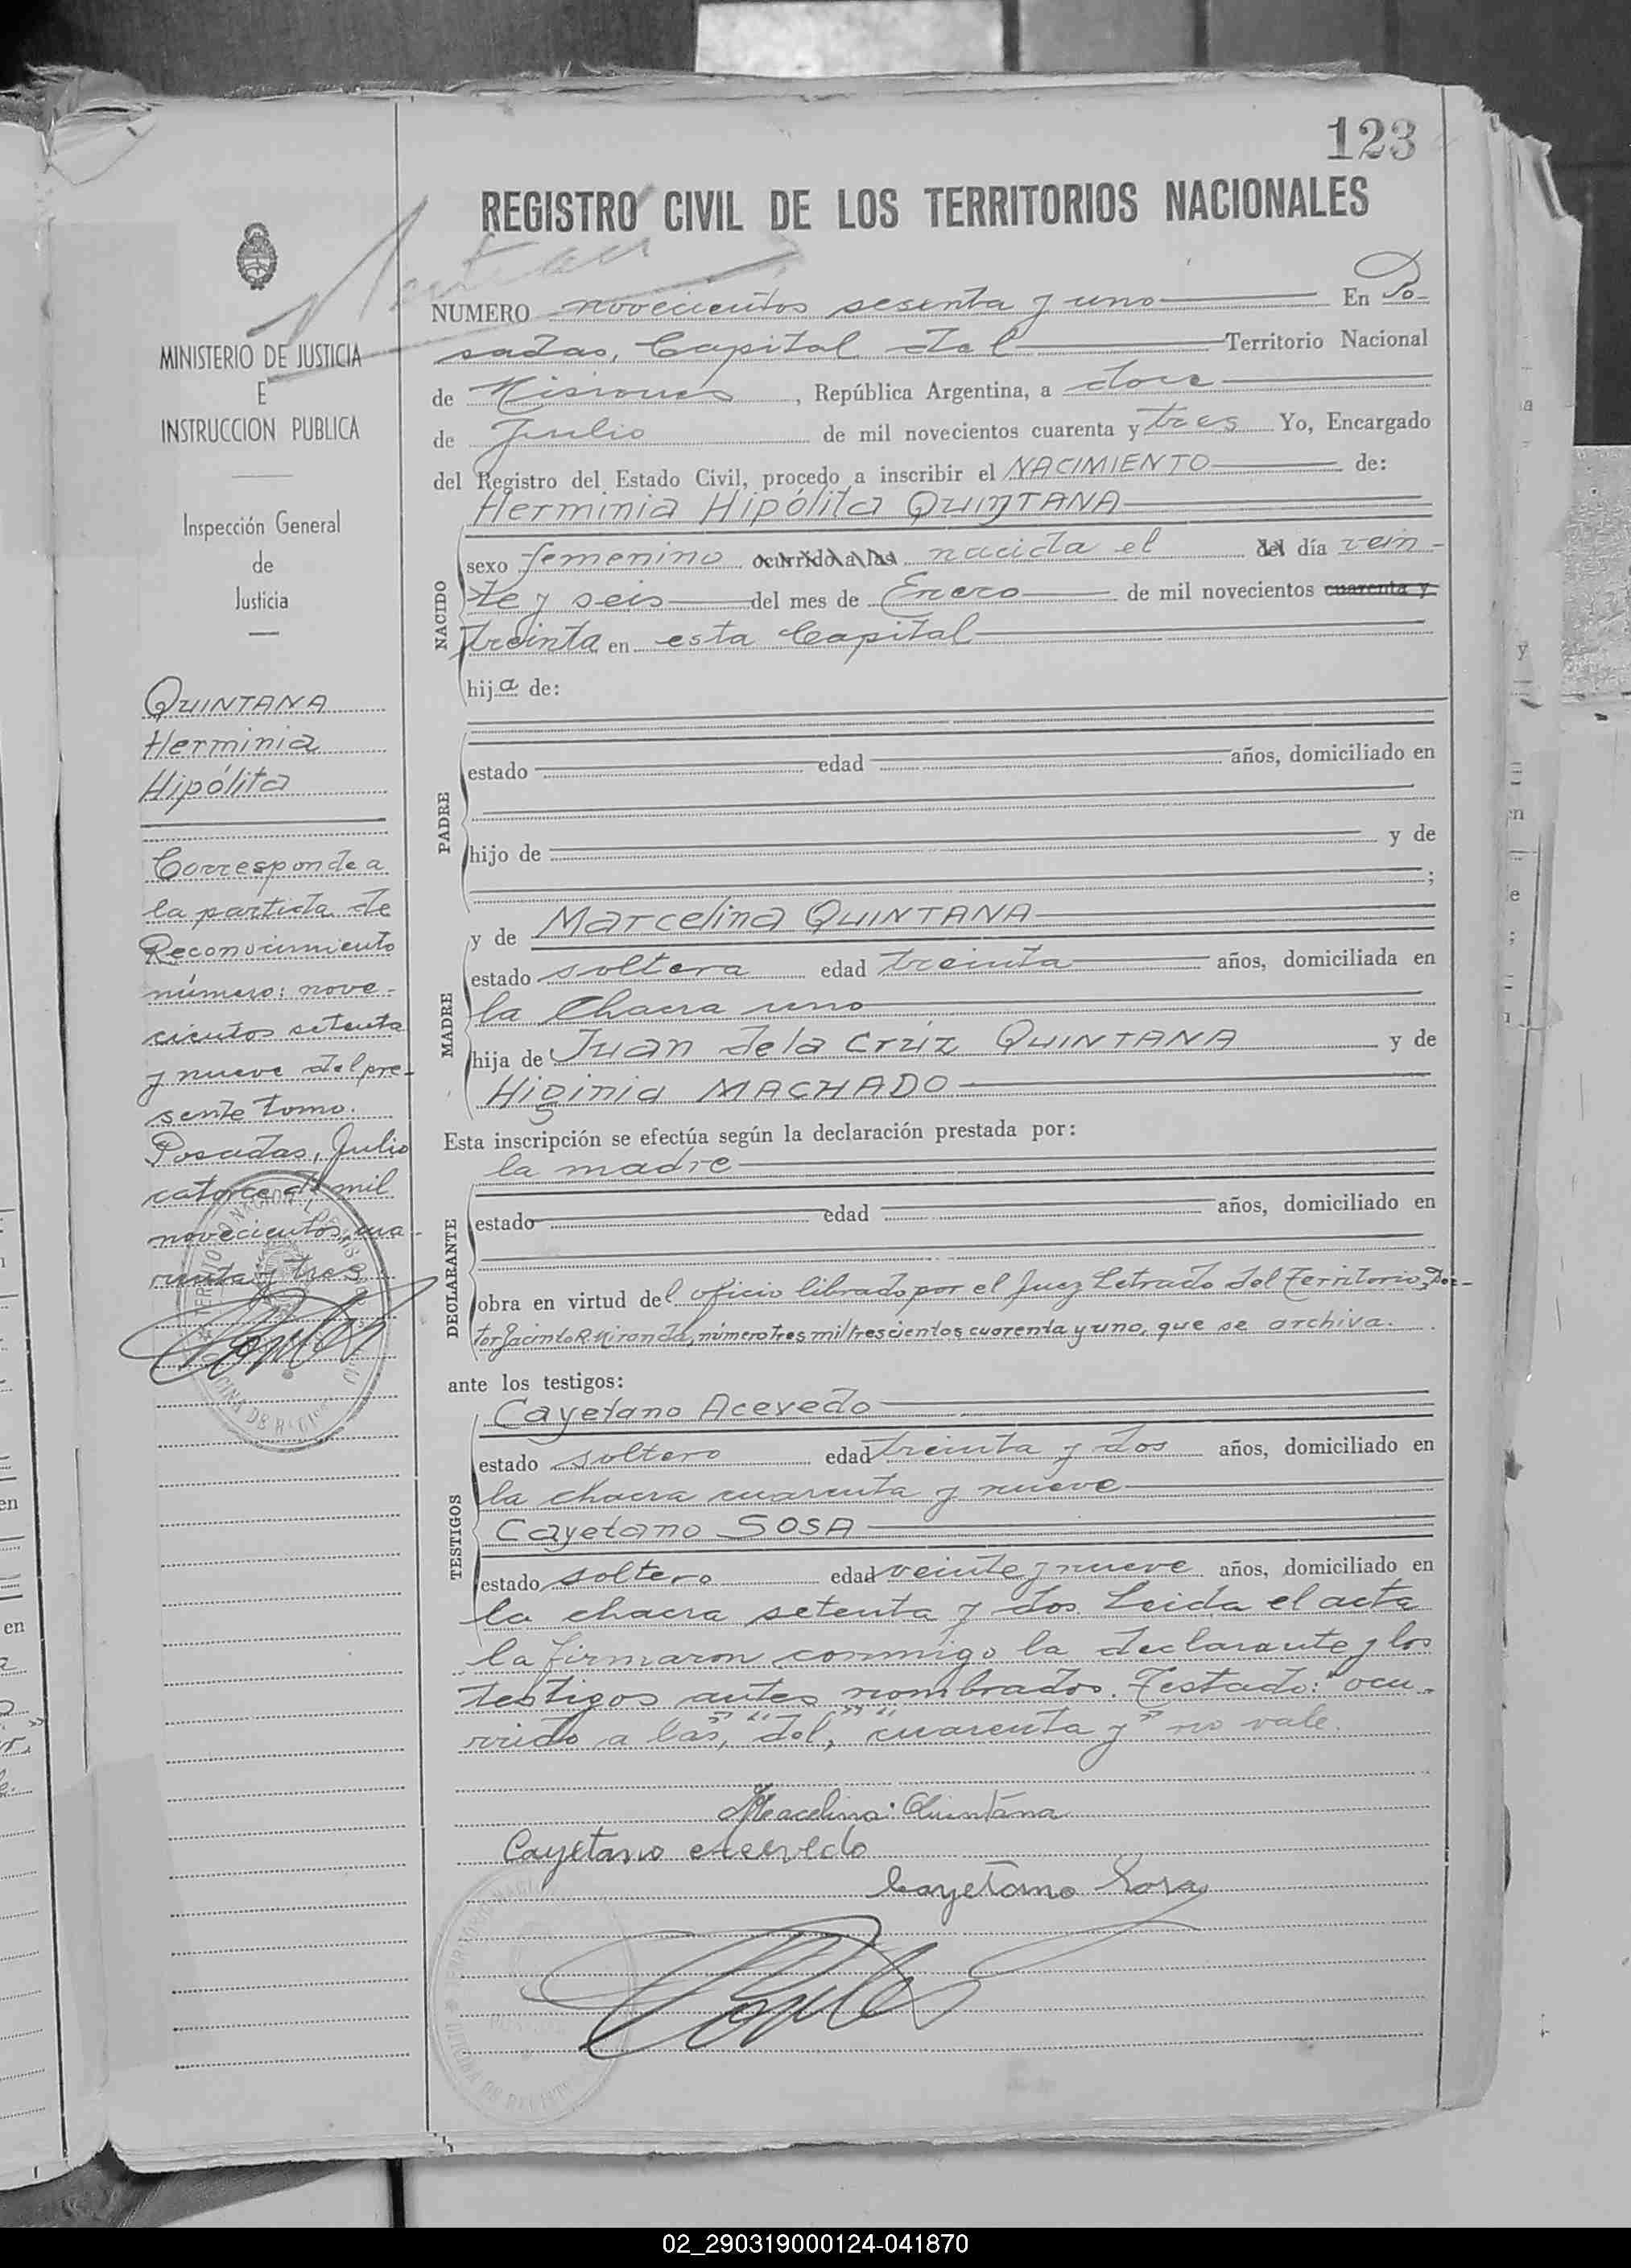 123
REGISTRO CIVIL DE LOS TERRITORIOS NACIONALES
MINISTERIO DE JUSTICIA
E
INSTRUCCION PUBLICA
Inspección General
de
Justicia
QUINTANA
Herminia
Hipólita
Corresponde a
la partida de
Reconocimiento
número: nove-
cientos setenta
y nueve del pre-
sente tomo.
Posadas, Julio
catorce de mil
novecientos cua-
renta y tres
NUMERO novecientos sesenta y uno En Po-
sadas, Capital del Territorio Nacional
de Misiones, República Argentina, a doce
de Julio de mil novecientos cuarenta y tres Yo, Encargado
del Registro del Estado Civil, procedo a inscribir el NACIMIENTO de:
Herminia Hipólita QUINTANA
NACIDO
sexo femenino ocurrido a las nacida el del día vein-
te y seis del mes de Enero de mil novecientos cuarenta y
treinta en esta Capital
hija de:
PADRE
estado edad años, domiciliado en
hijo de y de
;
MADRE
y de Marcelina QUINTANA
estado soltera edad treinta años, domiciliada en
la Chacra uno
hija de Juan de la Cruz QUINTANA y de
Higinia MACHADO
Esta inscripción se efectúa según la declaración prestada por:
DECLARANTE
la madre
estado edad años, domiciliado en
obra en virtud del oficio librado por el Juez Letrado del Territorio, Doc-
tor Jacinto R. Miranda, número tres mil trescientos cuarenta y uno, que se archiva.
ante los testigos:
TESTIGOS
Cayetano Acevedo
estado soltero edad treinta y dos años, domiciliado en
la chacra cuarenta y nueve
Cayetano SOSA
estado soltero edad veinte y nueve años, domiciliado en
la chacra setenta y dos. Leida el acta
la firmaron conmigo la declarante y los
testigos antes nombrados. Testado: "ocu-
rrido a las", "del", "cuarenta y" no vale.
Marcelina Quintana
Cayetano Acevedo
Cayetano Sosa
02_290319000124-041870